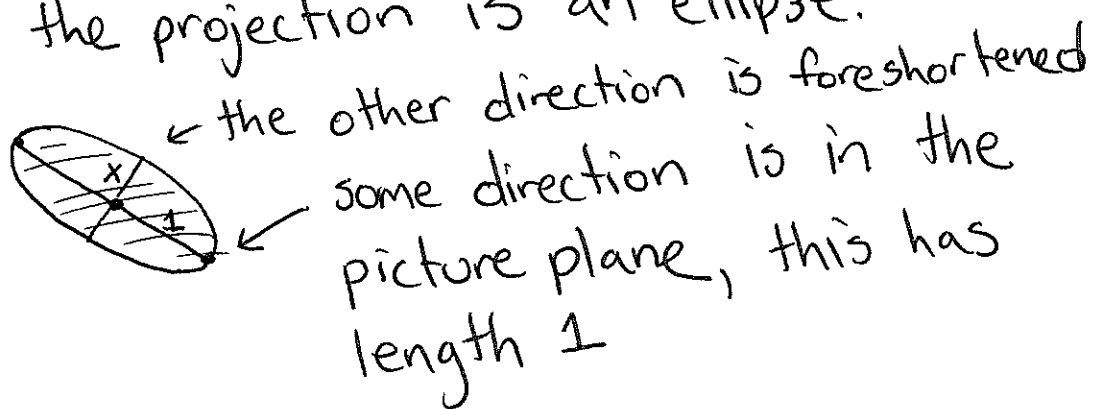 the projection is an ellipse.
← the other direction is foreshortened
x
some direction is in the
1
picture plane, this has
length 1